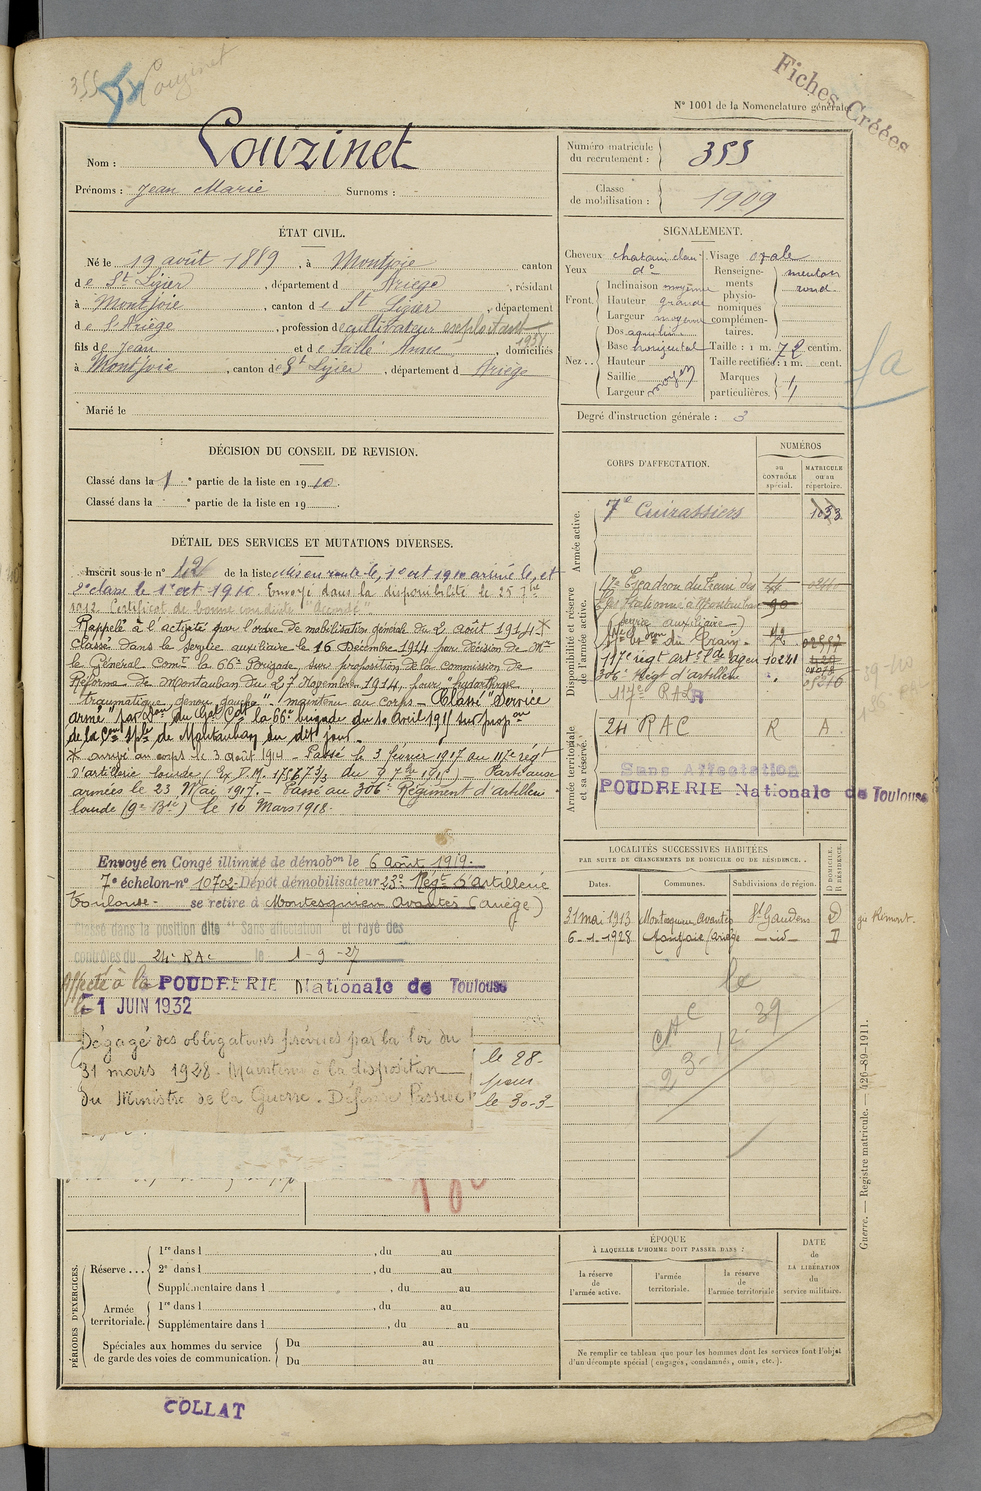 355
Couzinet
Fiches Créées
N° 1001 de la Nomenclature générale.
Nom : Couzinet
Prénoms : Jean Marie Surnoms :
Numéro matricule du recrutement : 355
Classe de mobilisation : 1909
ÉTAT CIVIL.
Né le 19 août 1889, à Montjoie canton
de St Lizier, département d Ariège, résidant
à Montjoie, canton de St Lizier, département
de l'Ariège, profession de cultivateur exploitant
fils de Jean et de Anne, domiciliés
à Montjoie, canton de St Lizier, département d Ariège
Marié le
SIGNALEMENT.
Cheveux chatain clair Visage ovale
Yeux d° Renseignements physionomiques complémentaires. menton rond
Front. Inclinaison moyenne
Hauteur grande
Largeur moyenne
Nez.. Dos aquilin
Base horizontal Taille : 1 m. 72 centim.
Hauteur Taille rectifiée : 1 m. cent.
Saillie Marques
Largeur moyen particulières.
Degré d'instruction générale : 3
DÉCISION DU CONSEIL DE REVISION.
Classé dans la 1 e partie de la liste en 1910.
Classé dans la e partie de la liste en 19 .
DÉTAIL DES SERVICES ET MUTATIONS DIVERSES.
Inscrit sous le n° de la liste mis en route le 1er oct 1910 arrivé le, et
2e classe le 1er oct 1910. Envoyé dans la disponibilité le 25 7bre
1912. Certificat de bonne conduite "Accordé"
Rappelé à l'activité par l'ordre de mobilisation générale du 2 août 1914 *
Classé dans le service auxiliaire le 16 Décembre 1914 par décision de Mr
le Général Comt la 66e Brigade, sur proposition de la commission de
Réforme de Montauban du 27 Novembre 1914, pour "hydarthrose
traumatique genou gauche" maintenu au corps - Classé "Service
armé" par Don du Gal Cdt la 66e brigade du 10 avril 1915 sur propon
de la Con Sple de Montauban du dit jour.
* arrivé au corps le 3 août 1914 - Passé le 3 février 1917 au 117e régt
d'artillerie lourde - Parti aux
armées le 23 Mai 1917. - Passé au 306e Régiment d'artillerie
lourde le 16 Mars 1918.
Envoyé en Congé illimité de démobon le 6 Août 1919.
7e échelon-n° 10702-Dépôt démobilisateur 23e Régt d'Artillerie
Toulouse. se retire à Montesquieu Avantès (Ariège)
Classé dans la position dite "Sans affectation et rayé des
contrôles du 24e RAC le 1-9-27
Affecté à la POUDRERIE Nationale de Toulouse
le -1 JUIN 1932
Dégagé des obligations prévues par la loi du
31 mars 1928. Maintenu à la disposition
du Ministre de la Guerre. Défense Passive
le 28-
pour
le 30-3-
CORPS D'AFFECTATION.
NUMÉROS
au CONTRÔLE spécial.
MATRICULE ou au répertoire.
Armée active.
7e Cuirassiers 1033
Disponibilité et réserve de l'armée active.
17e Escadron du Train des
Eqges stationné à Montauban
(service auxiliaire)
117e régt art. lde 10241
306e Régt d'artillerie
117e RAL
Armée territoriale et sa réserve.
24 RAC R A
Sans Affectation
POUDRERIE Nationale de Toulouse
LOCALITÉS SUCCESSIVES HABITÉES
PAR SUITE DE CHANGEMENTS DE DOMICILE OU DE RÉSIDENCE.
Dates. Communes. Subdivisions de région. D DOMICILE. R RÉSIDENCE.
31 mai 1913 Montesquieu Avantès St Gaudens D
6-1-1928 Montjoie (Ariège) - id - D
Guerre. — Registre matricule. — 426-89-1911.
PÉRIODES D'EXERCICES.
Réserve... 1re dans l , du au
2e dans l , du au
Supplémentaire dans l , du au
Armée territoriale. 1re dans l , du au
Supplémentaire dans l , du au
Spéciales aux hommes du service de garde des voies de communication. Du au
Du au
ÉPOQUE
À LAQUELLE L'HOMME DOIT PASSER DANS :
la réserve de l'armée active.
l'armée territoriale.
la réserve de l'armée territoriale
DATE de LA LIBÉRATION du service militaire.
Ne remplir ce tableau que pour les hommes dont les services font l'objet
d'un décompte spécial (engagés, condamnés, omis, etc.).
COLLAT